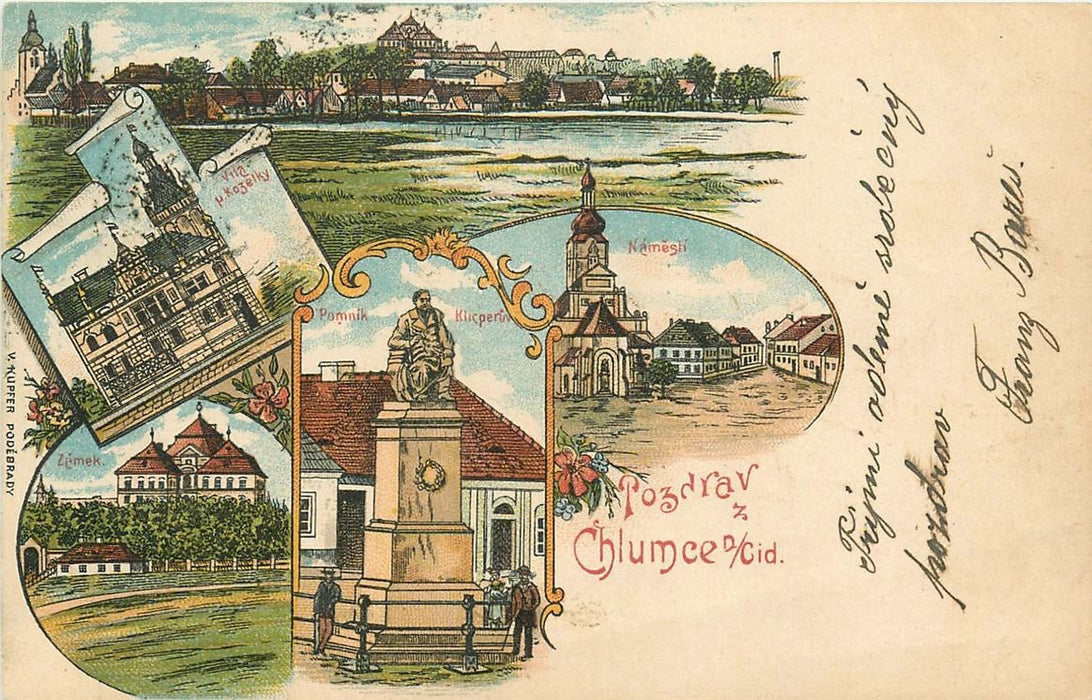 Villa
p. Kozelky
Náměstí
Pomník Klicperův
Zámek.
Pozdrav
z
Chlumce n/Cid.
V. KUPFER PODĚBRADY
Přijmi odemě srdečný
pozdrav
Franz